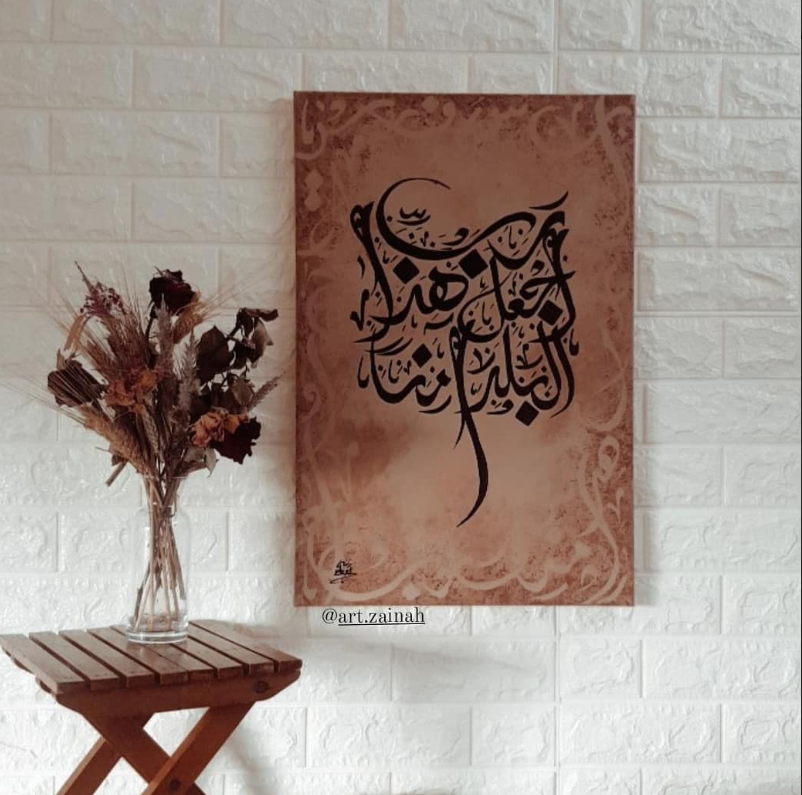 رب
اجعل هذا
البلد آمنا
@art.zainah